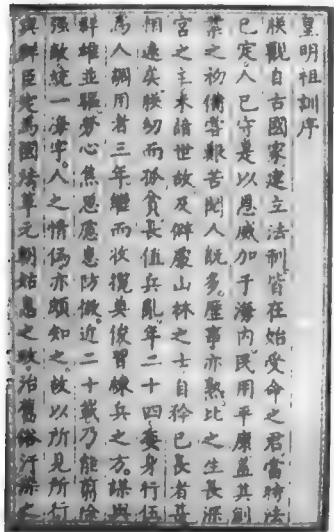 皇明祖訓序
朕觀自古國家建立法制皆在始受命之君當時法
已定人已守是以恩威加于海內民用平康蓋其創
業之初備嘗艱苦閱人既多歷事亦熟比之生長深
宮之主未諳世故及僻處山林之士自矜己長者甚
相遠矣朕幼而孤貧長值兵亂年二十四委身行伍
為人調用者三年繼而收攬英俊習練兵之方謀與
群雄並驅勞心焦思慮患防微近二十載乃能翦除
強敵統一海宇人之情偽亦頗知之故以所見所行
與群臣定為國法革元朝姑息之政治舊俗汙染之